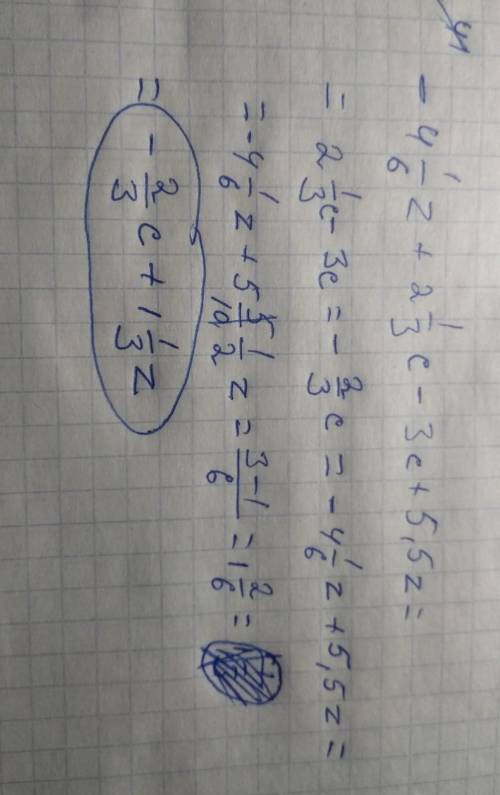 - 4 1/6 z + 2 1/3 c - 3c + 5,5z =
= 2 1/3 c - 3c = - 2/3 c = - 4 1/6 z + 5,5z =
= - 4 1/6 z + 5 5/10 1/2 z = 3-1/6 = 1 2/6 =
= - 2/3 c + 1 1/3 z